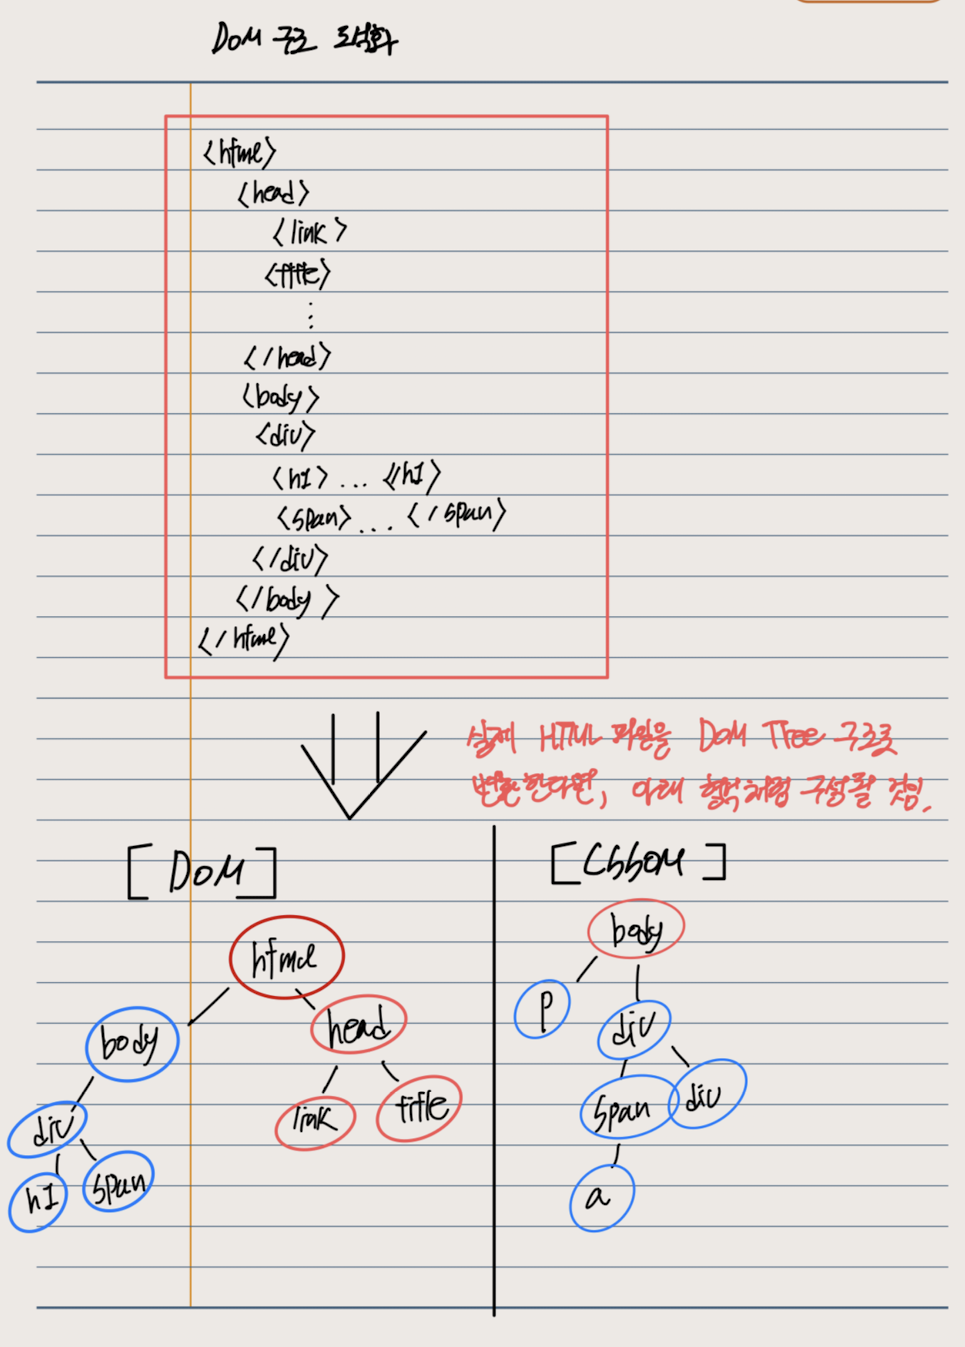 DOM 구조 도식화
<html>
<head>
<link>
<title>
⋮
</head>
<body>
<div>
<h1> ... </h1>
<span> ... </span>
</div>
</body>
</html>
실제 HTML 파일을 DOM Tree 구조로
변환한다면, 아래 형식처럼 구성될 것임.
[DOM]
html
body
head
link
title
div
h1
span
[CSSOM]
body
p
div
span
div
a